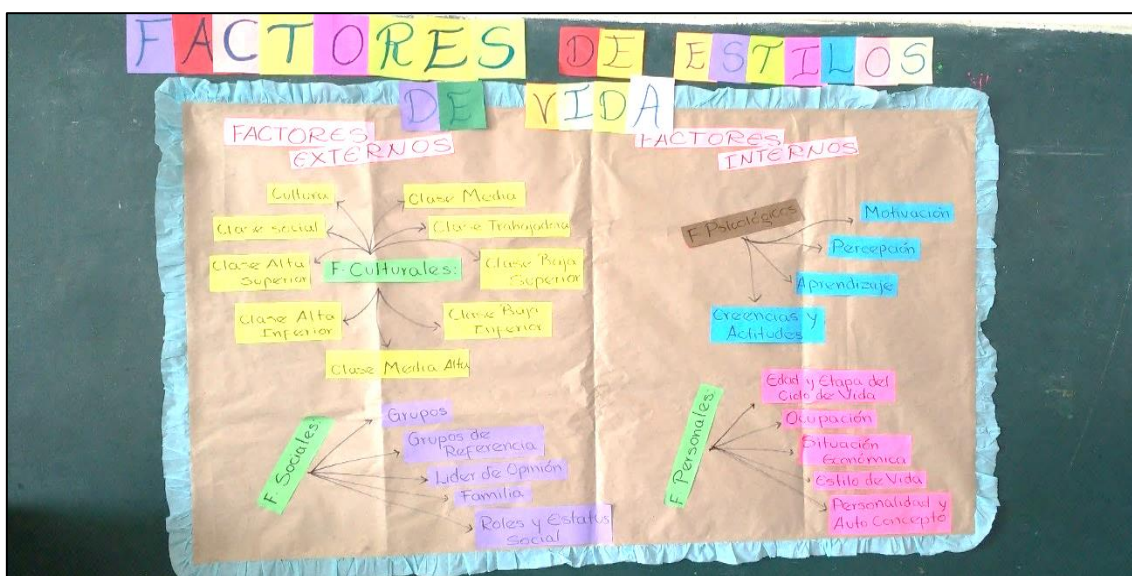 FACTORES DE ESTILOS
DE VIDA
FACTORES
EXTERNOS
Cultura
Clase social
Clase Alta
Superior
Clase Alta
Inferior
Clase Media Alta
Clase Media
Clase Trabajadora
Clase Baja
Superior
Clase Baja
Inferior
F. Culturales:
F. Sociales:
Grupos
Grupos de
Referencia
Lider de Opinión
Familia
Roles y Estatus
Social
FACTORES
INTERNOS
F. Psicológicos
Motivación
Percepción
Aprendizaje
Creencias y
Actitudes
F. Personales:
Edad y Etapa del
Ciclo de Vida
Ocupación
Situación
Económica
Estilo de Vida
Personalidad y
Auto Concepto